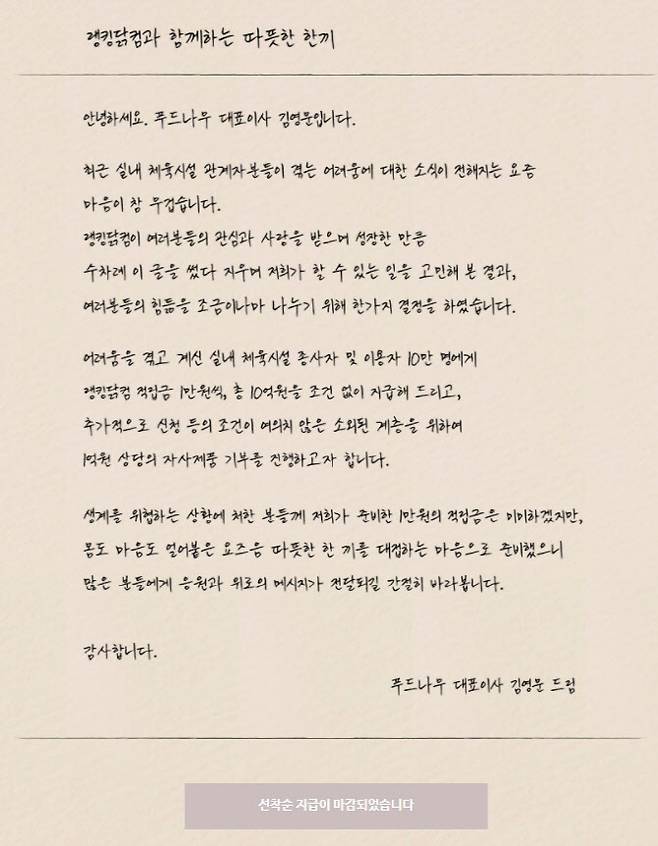 랭킹닭컴과 함께하는 따뜻한 한끼
안녕하세요. 푸드나무 대표이사 김영문입니다.
최근 실내 체육시설 관계자분들이 겪는 어려움에 대한 소식이 전해지는 요즘
마음이 참 무겁습니다.
랭킹닭컴이 여러분들의 관심과 사랑을 받으며 성장한 만큼
수차례 이 글을 썼다 지우며 저희가 할 수 있는 일을 고민해 본 결과,
여러분들의 힘듦을 조금이나마 나누기 위해 한가지 결정을 하였습니다.
어려움을 겪고 계신 실내 체육시설 종사자 및 이용자 10만 명에게
랭킹닭컴 적립금 1만원씩, 총 10억원을 조건 없이 지급해 드리고,
추가적으로 신청 등의 조건이 여의치 않은 소외된 계층을 위하여
1억원 상당의 자사제품 기부를 진행하고자 합니다.
생계를 위협하는 상황에 처한 분들께 저희가 준비한 1만원의 적립금은 미미하겠지만,
몸도 마음도 얼어붙은 요즈음 따뜻한 한 끼를 대접하는 마음으로 준비했으니
많은 분들에게 응원과 위로의 메시지가 전달되길 간절히 바라봅니다.
감사합니다.
푸드나무 대표이사 김영문 드림
선착순 지급이 마감되었습니다